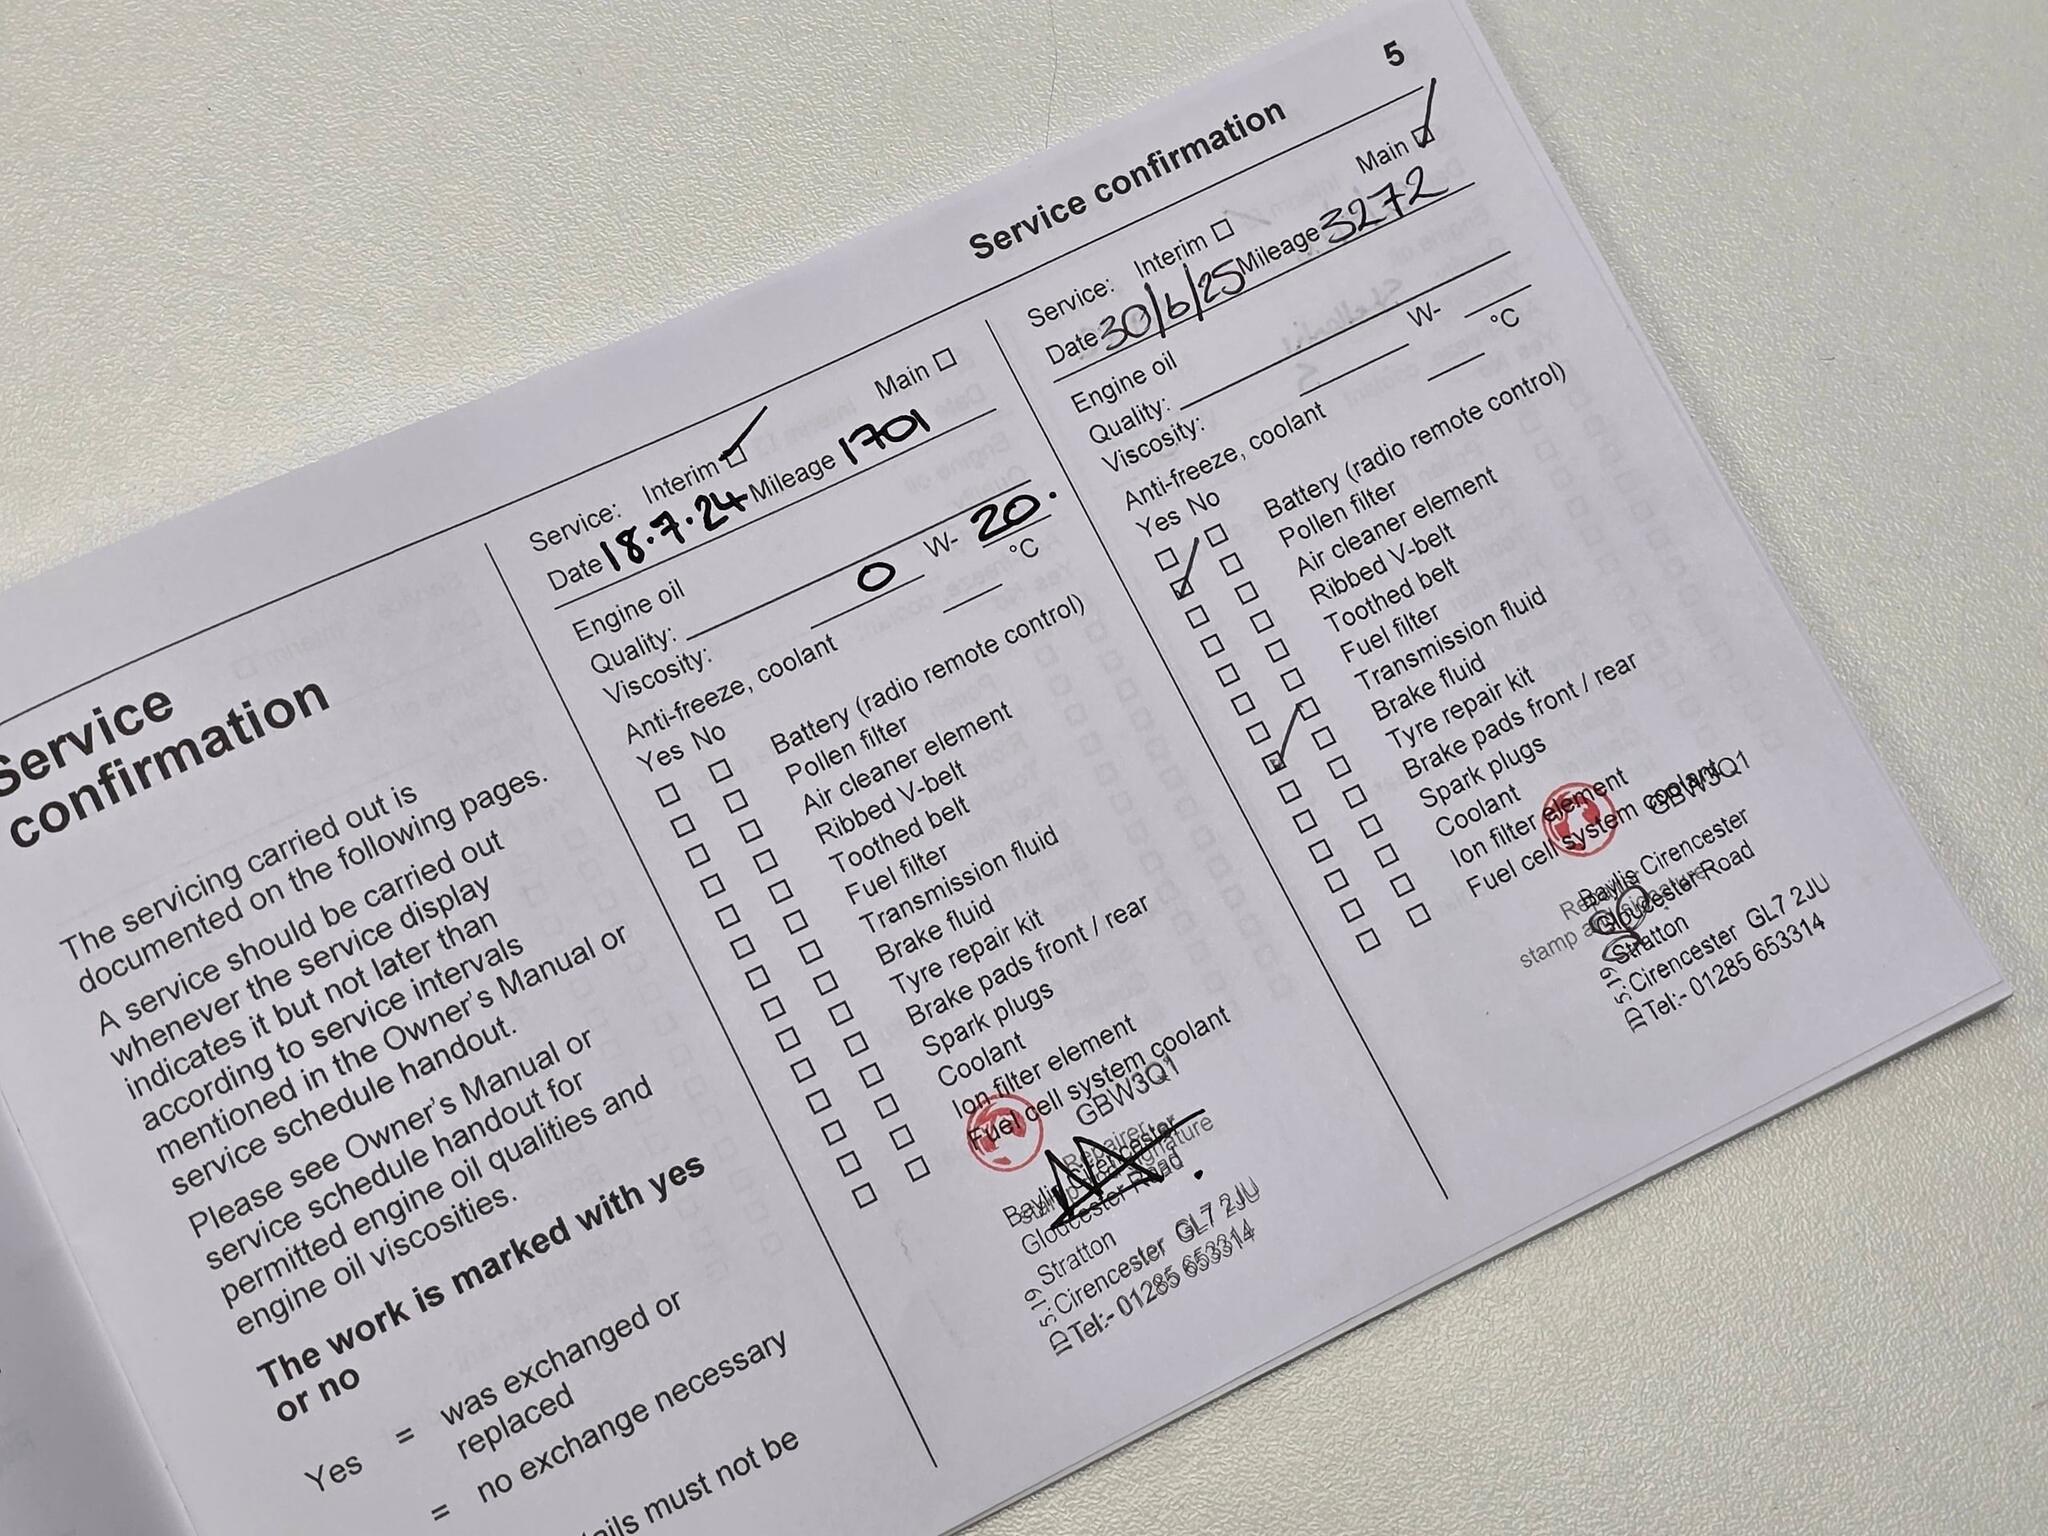 5
Service confirmation
Service
confirmation
The servicing carried out is
documented on the following pages.
A service should be carried out
whenever the service display
indicates it but not later than
according to service intervals
mentioned in the Owner's Manual or
service schedule handout.
Please see Owner's Manual or
service schedule handout for
permitted engine oil qualities and
engine oil viscosities.
The work is marked with yes
or no
Yes = was exchanged or
replaced
= no exchange necessary
must not be
Service: Interim Main
Date 18.7.24 Mileage 1701
Engine oil
Quality:
Viscosity: 0 W- 20.
Anti-freeze, coolant °C
Yes No
Battery (radio remote control)
Pollen filter
Air cleaner element
Ribbed V-belt
Toothed belt
Fuel filter
Transmission fluid
Brake fluid
Tyre repair kit
Brake pads front / rear
Spark plugs
Coolant
Ion filter element
Fuel cell system coolant
GBW3Q1
Repairer
stamp and signature
Baylis Cirencester
Gloucester Road
Stratton
Cirencester GL7 2JU
Tel:- 01285 653314
Service: Interim Main
Date 30/6/25 Mileage 3272
Engine oil
Quality:
Viscosity: W-
Anti-freeze, coolant °C
Yes No
Battery (radio remote control)
Pollen filter
Air cleaner element
Ribbed V-belt
Toothed belt
Fuel filter
Transmission fluid
Brake fluid
Tyre repair kit
Brake pads front / rear
Spark plugs
Coolant
Ion filter element
Fuel cell system coolant
GBW3Q1
Repairer
stamp and signature
Baylis Cirencester
Gloucester Road
Stratton
Cirencester GL7 2JU
Tel:- 01285 653314